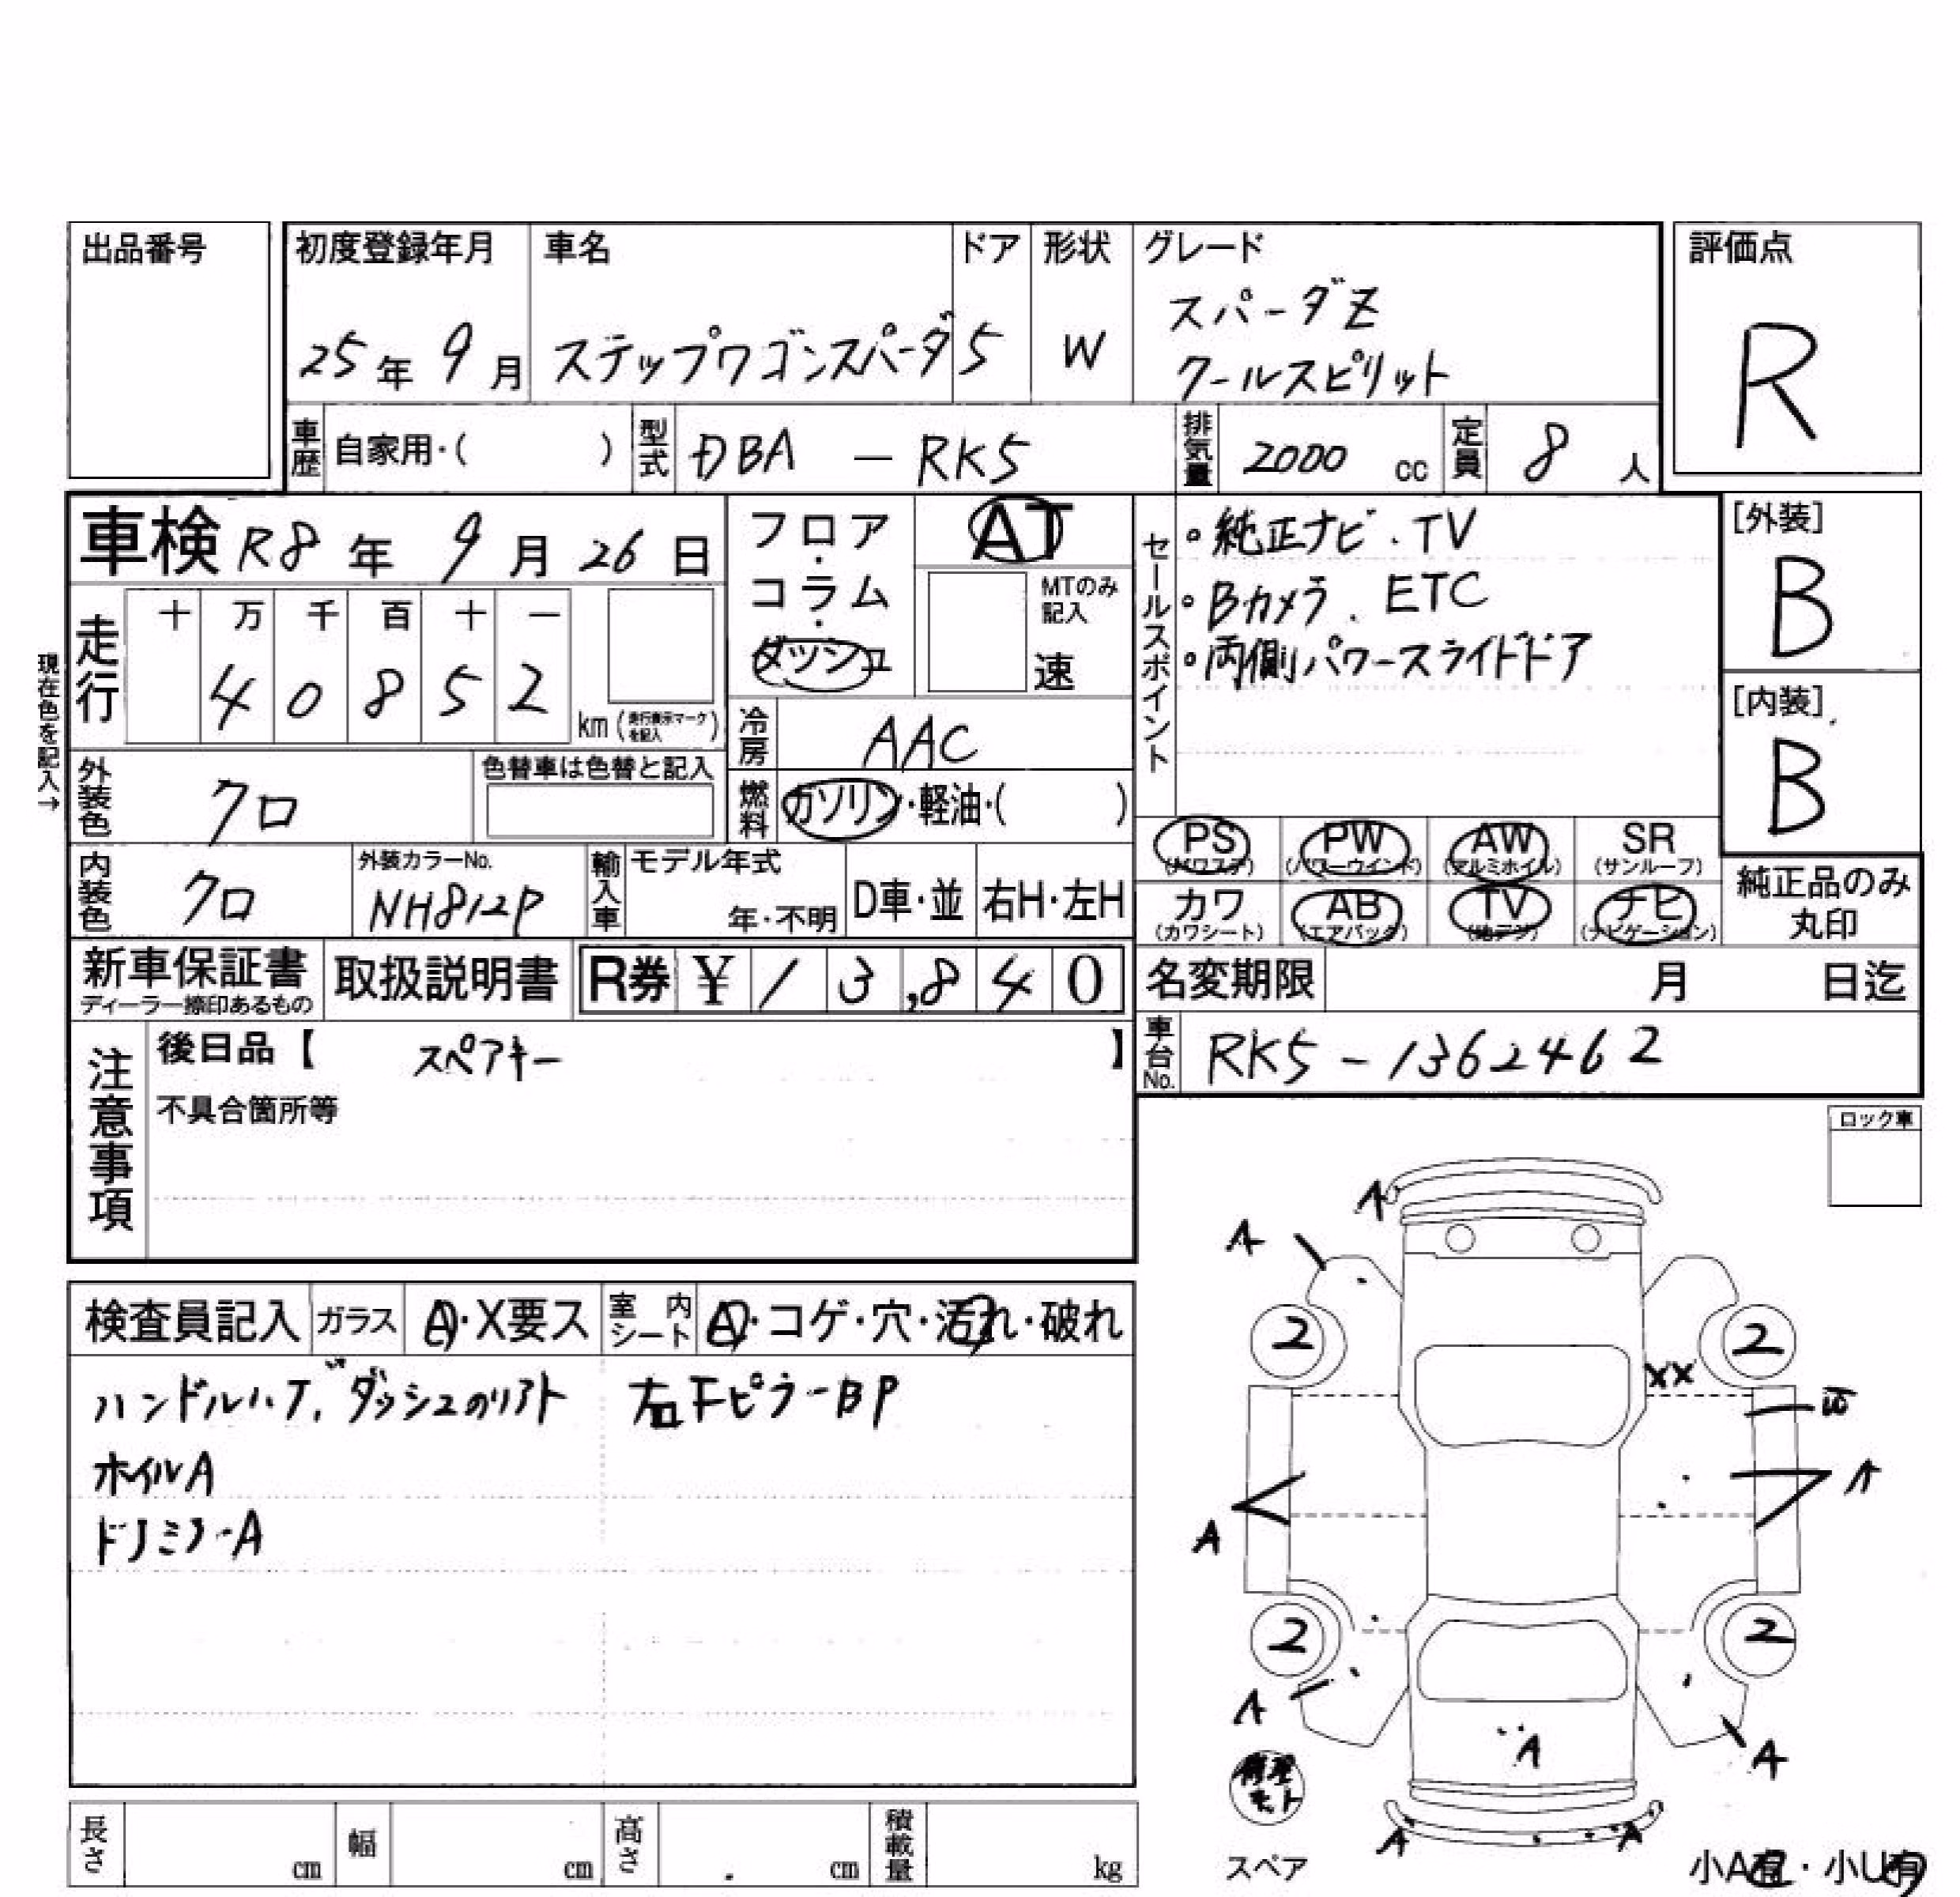 出品番号
初度登録年月 車名 ドア 形状 グレード
評価点
25年 9月 ステップワゴンスパーダ 5 W スパーダZ
クールスピリット
R
車歴 自家用・( ) 型式 DBA - RK5 排気量 2000 cc 定員 8 人
車検 R8年 9月 26日
フロア・コラム・ダッシュ
AT
MTのみ記入
速
セールスポイント
。純正ナビ・TV
。Bカメラ. ETC
。両側パワースライドドア
[外装]
B
[内装]
B
現在色を記入→
走行 十 万 千 百 十 一
4 0 8 5 2
km (走行表示マークを記入)
冷房 AAC
外装色 クロ 色替車は色替と記入
燃料 ガソリン・軽油・( )
PS PW AW SR
(パワステ) (パワーウインド) (アルミホイル) (サンルーフ)
カワ AB TV ナビ
(カワシート) (エアバック) (地デジ) (ナビゲーション)
純正品のみ
丸印
内装色 クロ 外装カラーNo. NH812P
輸入車 モデル年式
年・不明 D車・並 右H・左H
新車保証書 取扱説明書 R券 ¥13,840
ディーラー捺印あるもの
名変期限 月 日迄
車台No. RK5 - 1362462
注意事項
後日品【 スペアキー 】
不具合箇所等
ロック車
検査員記入 ガラス A・X要ス 室内シート A・コゲ・穴・汚れ・破れ
ハンドルハゲ, ダッシュのリフト 右下ピラーBP
ホイルA
ドアミラーA
A
A
2 2
XX
A
A
2 2
A
A
A
修理キット
A A
スペア
小A有・小U有
長さ cm 幅 cm 高さ cm 積載量 kg